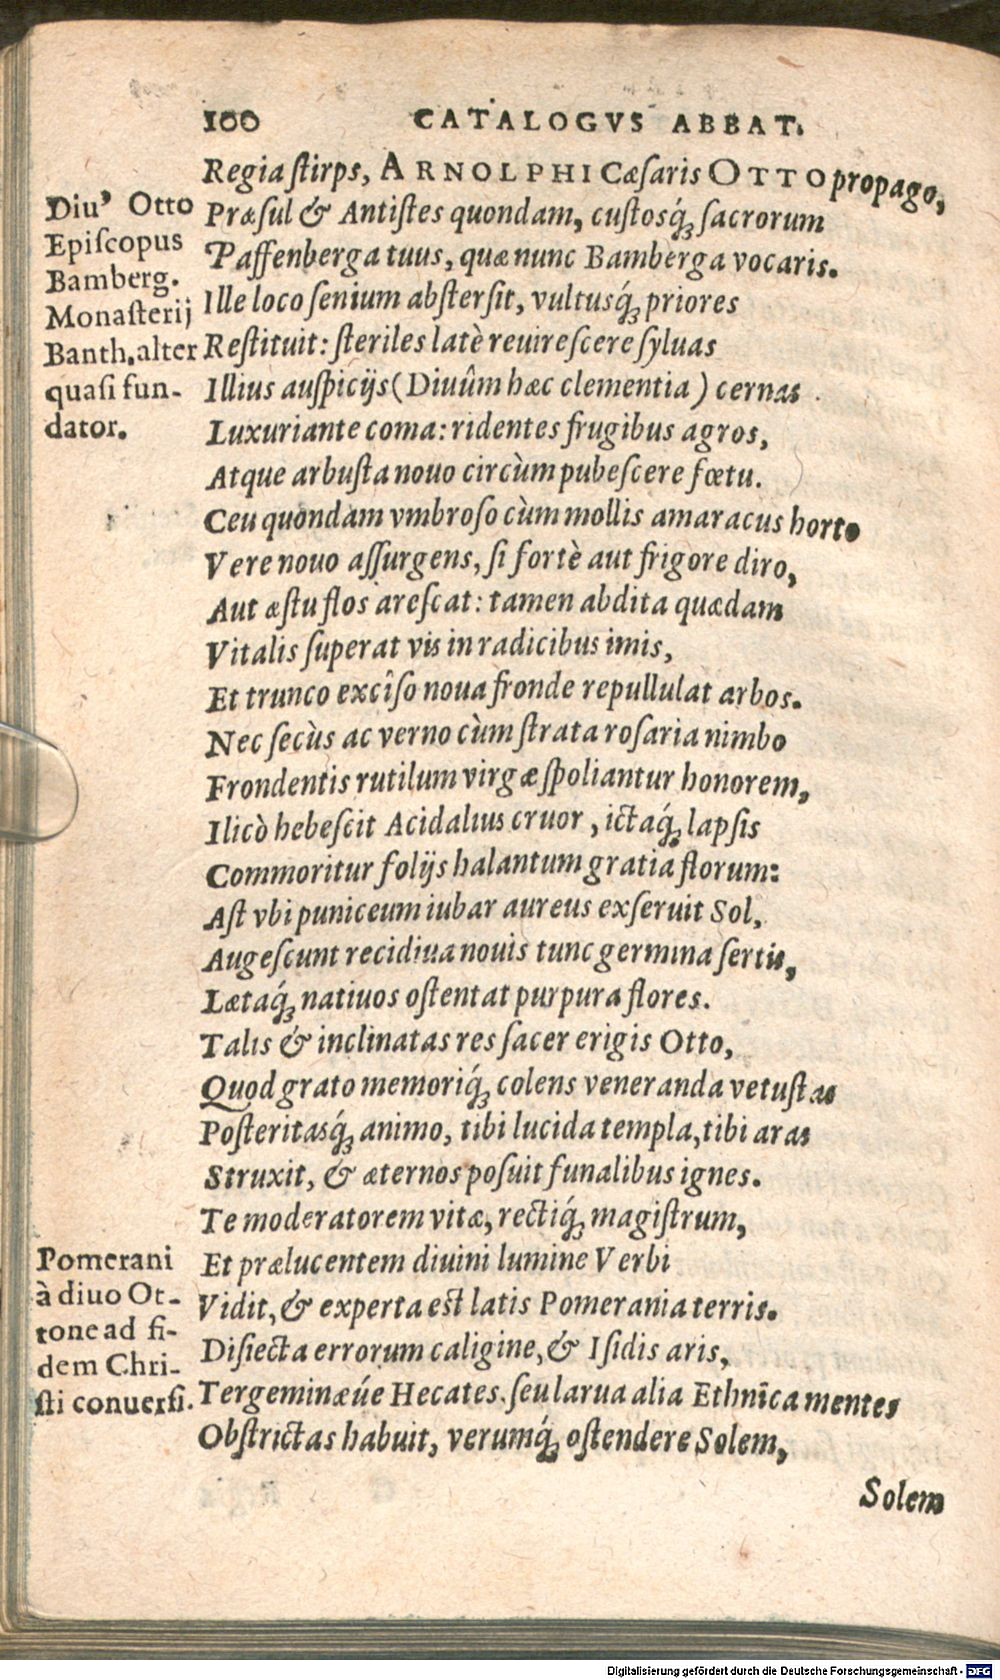 100 CATALOGVS ABBAT.
Regia ſtirps, ARNOLPHI Cæſaris OTTO propago,
Præſul & Antiſtes quondam, cuſtosq́; ſacrorum
Paffenberga tuus, quæ nunc Bamberga vocaris.
Ille loco ſenium abſterſit, vultusq́; priores
Reſtituit: ſteriles latè reuireſcere ſyluas
Illius auſpicijs (Diuûm hæc clementia) cernas
Luxuriante coma: ridentes frugibus agros,
Atque arbuſta nouo circùm pubeſcere fœtu.
Ceu quondam vmbroſo cùm mollis amaracus horto
Vere nouo aſſurgens, ſi fortè aut frigore diro,
Aut æſtu flos areſcat: tamen abdita quædam
Vitalis ſuperat vis in radicibus imis,
Et trunco excîſo noua fronde repullulat arbos.
Nec ſecùs ac verno cùm ſtrata roſaria nimbo
Frondentis rutilum virgæ ſpoliantur honorem,
Ilicò hebeſcit Acidalius cruor, ictaq́; lapſis
Commoritur folijs halantum gratia florum:
Aſt vbi puniceum iubar aureus exſeruit Sol,
Augeſcunt recidiua nouis tunc germina ſertis,
Lætaq́; natiuos oſtentat purpura flores.
Talis & inclinatas res ſacer erigis Otto,
Quod grato memoriq́; colens veneranda vetuſtas
Poſteritasq́; animo, tibi lucida templa, tibi aras
Struxit, & æternos poſuit funalibus ignes.
Te moderatorem vitæ, rectiq́; magiſtrum,
Et prælucentem diuini lumine Verbi
Vidit, & experta eſt latis Pomerania terris.
Diſiecta errorum caligine, & Iſidis aris,
Tergeminæúe Hecates. ſeu larua alia Ethnîca mentes
Obſtrictas habuit, verumq́; oſtendere Solem,
Solem
Diu' Otto
Epiſcopus
Bamberg.
Monaſterij
Banth. alter
quaſi fun-
dator.
Pomerani
à diuo Ot-
tone ad fi-
dem Chri-
ſti conuerſi.
Digitalisierung gefördert durch die Deutsche Forschungsgemeinschaft - DFG